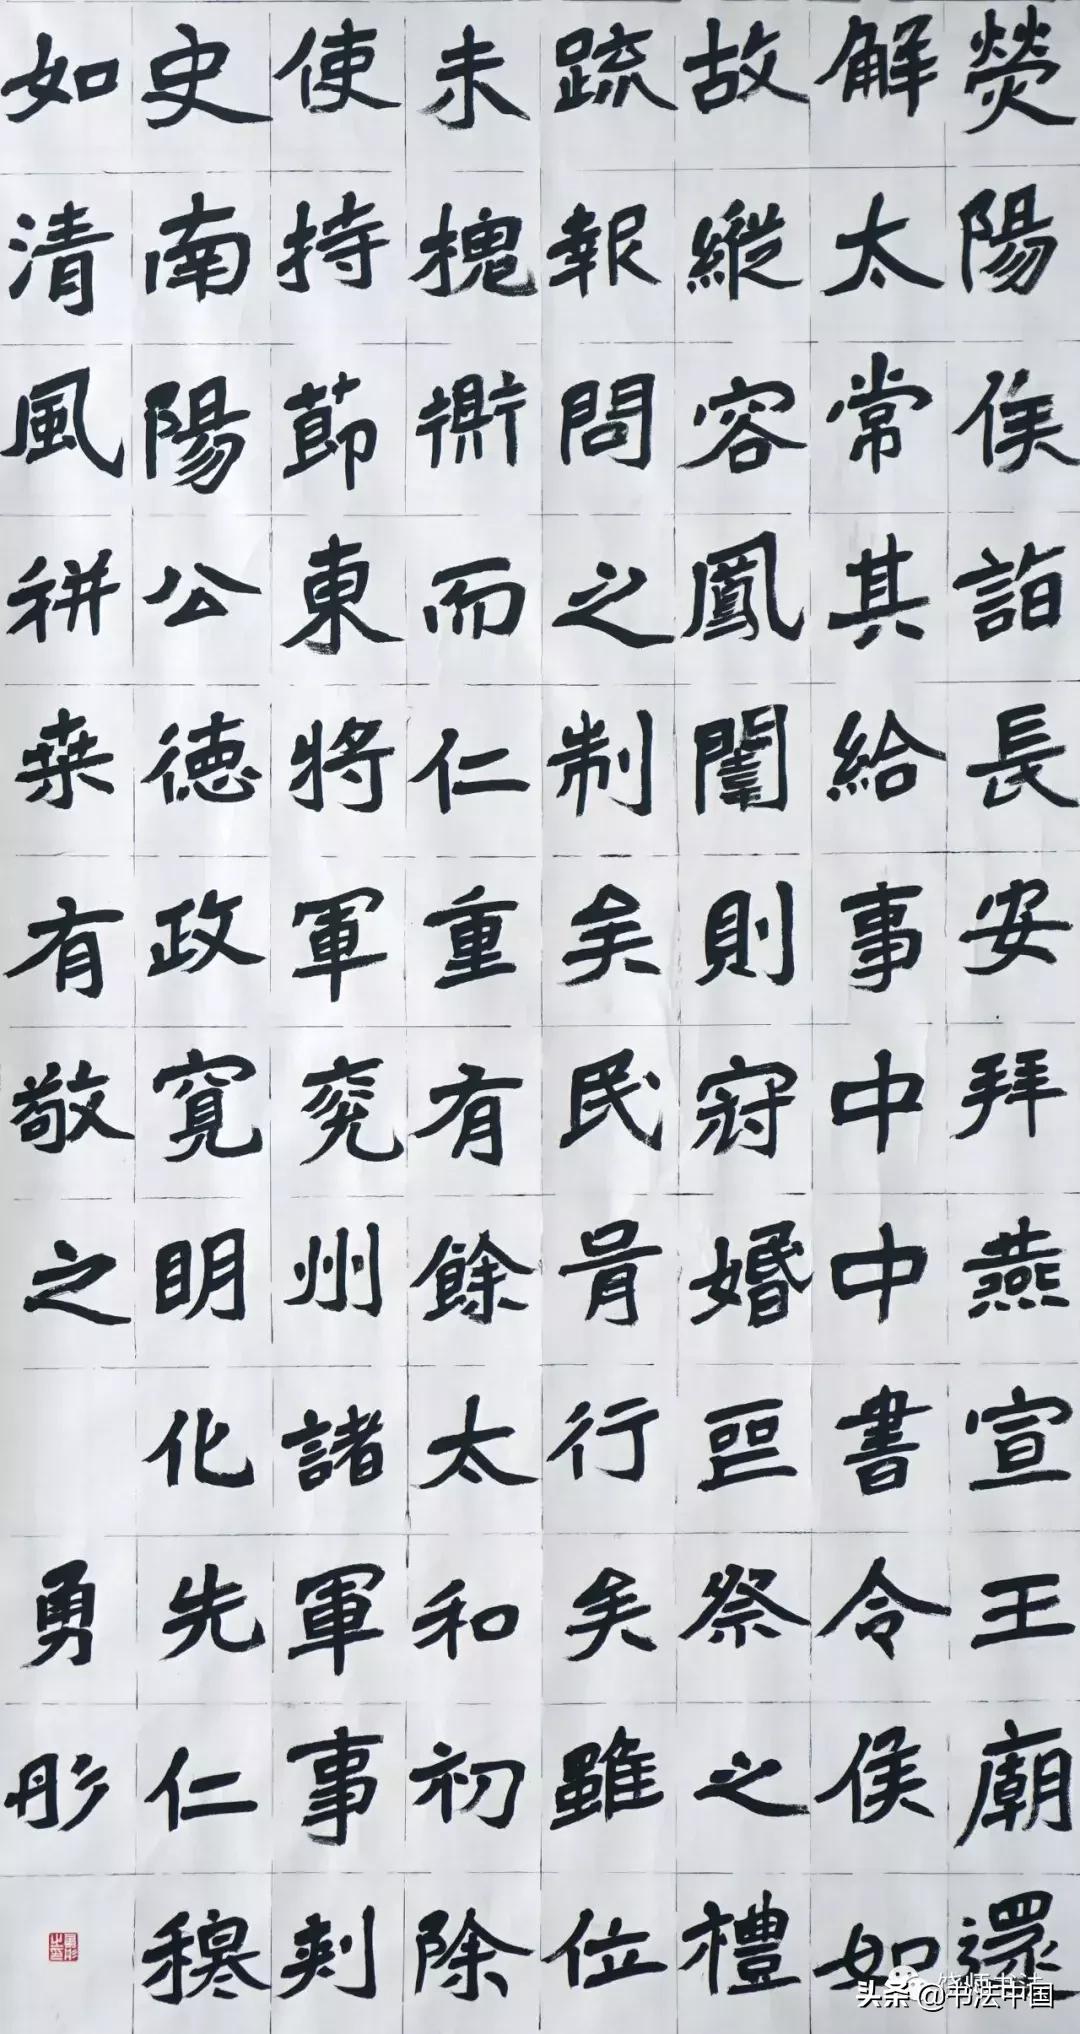 熒陽侯詣長安拜燕宣王廟還
解太常其給事中中書令侯如
故縱容鳳闥則冠婚喪祭之禮
疏報問之制矣民胥行矣雖位
未槐衡而仁重有餘太和初除
使持節東將軍兖州諸軍事刾
史南陽公德政寬明化先仁穆
如清風耕桒有敬之
勇彤
头条 @书法中国